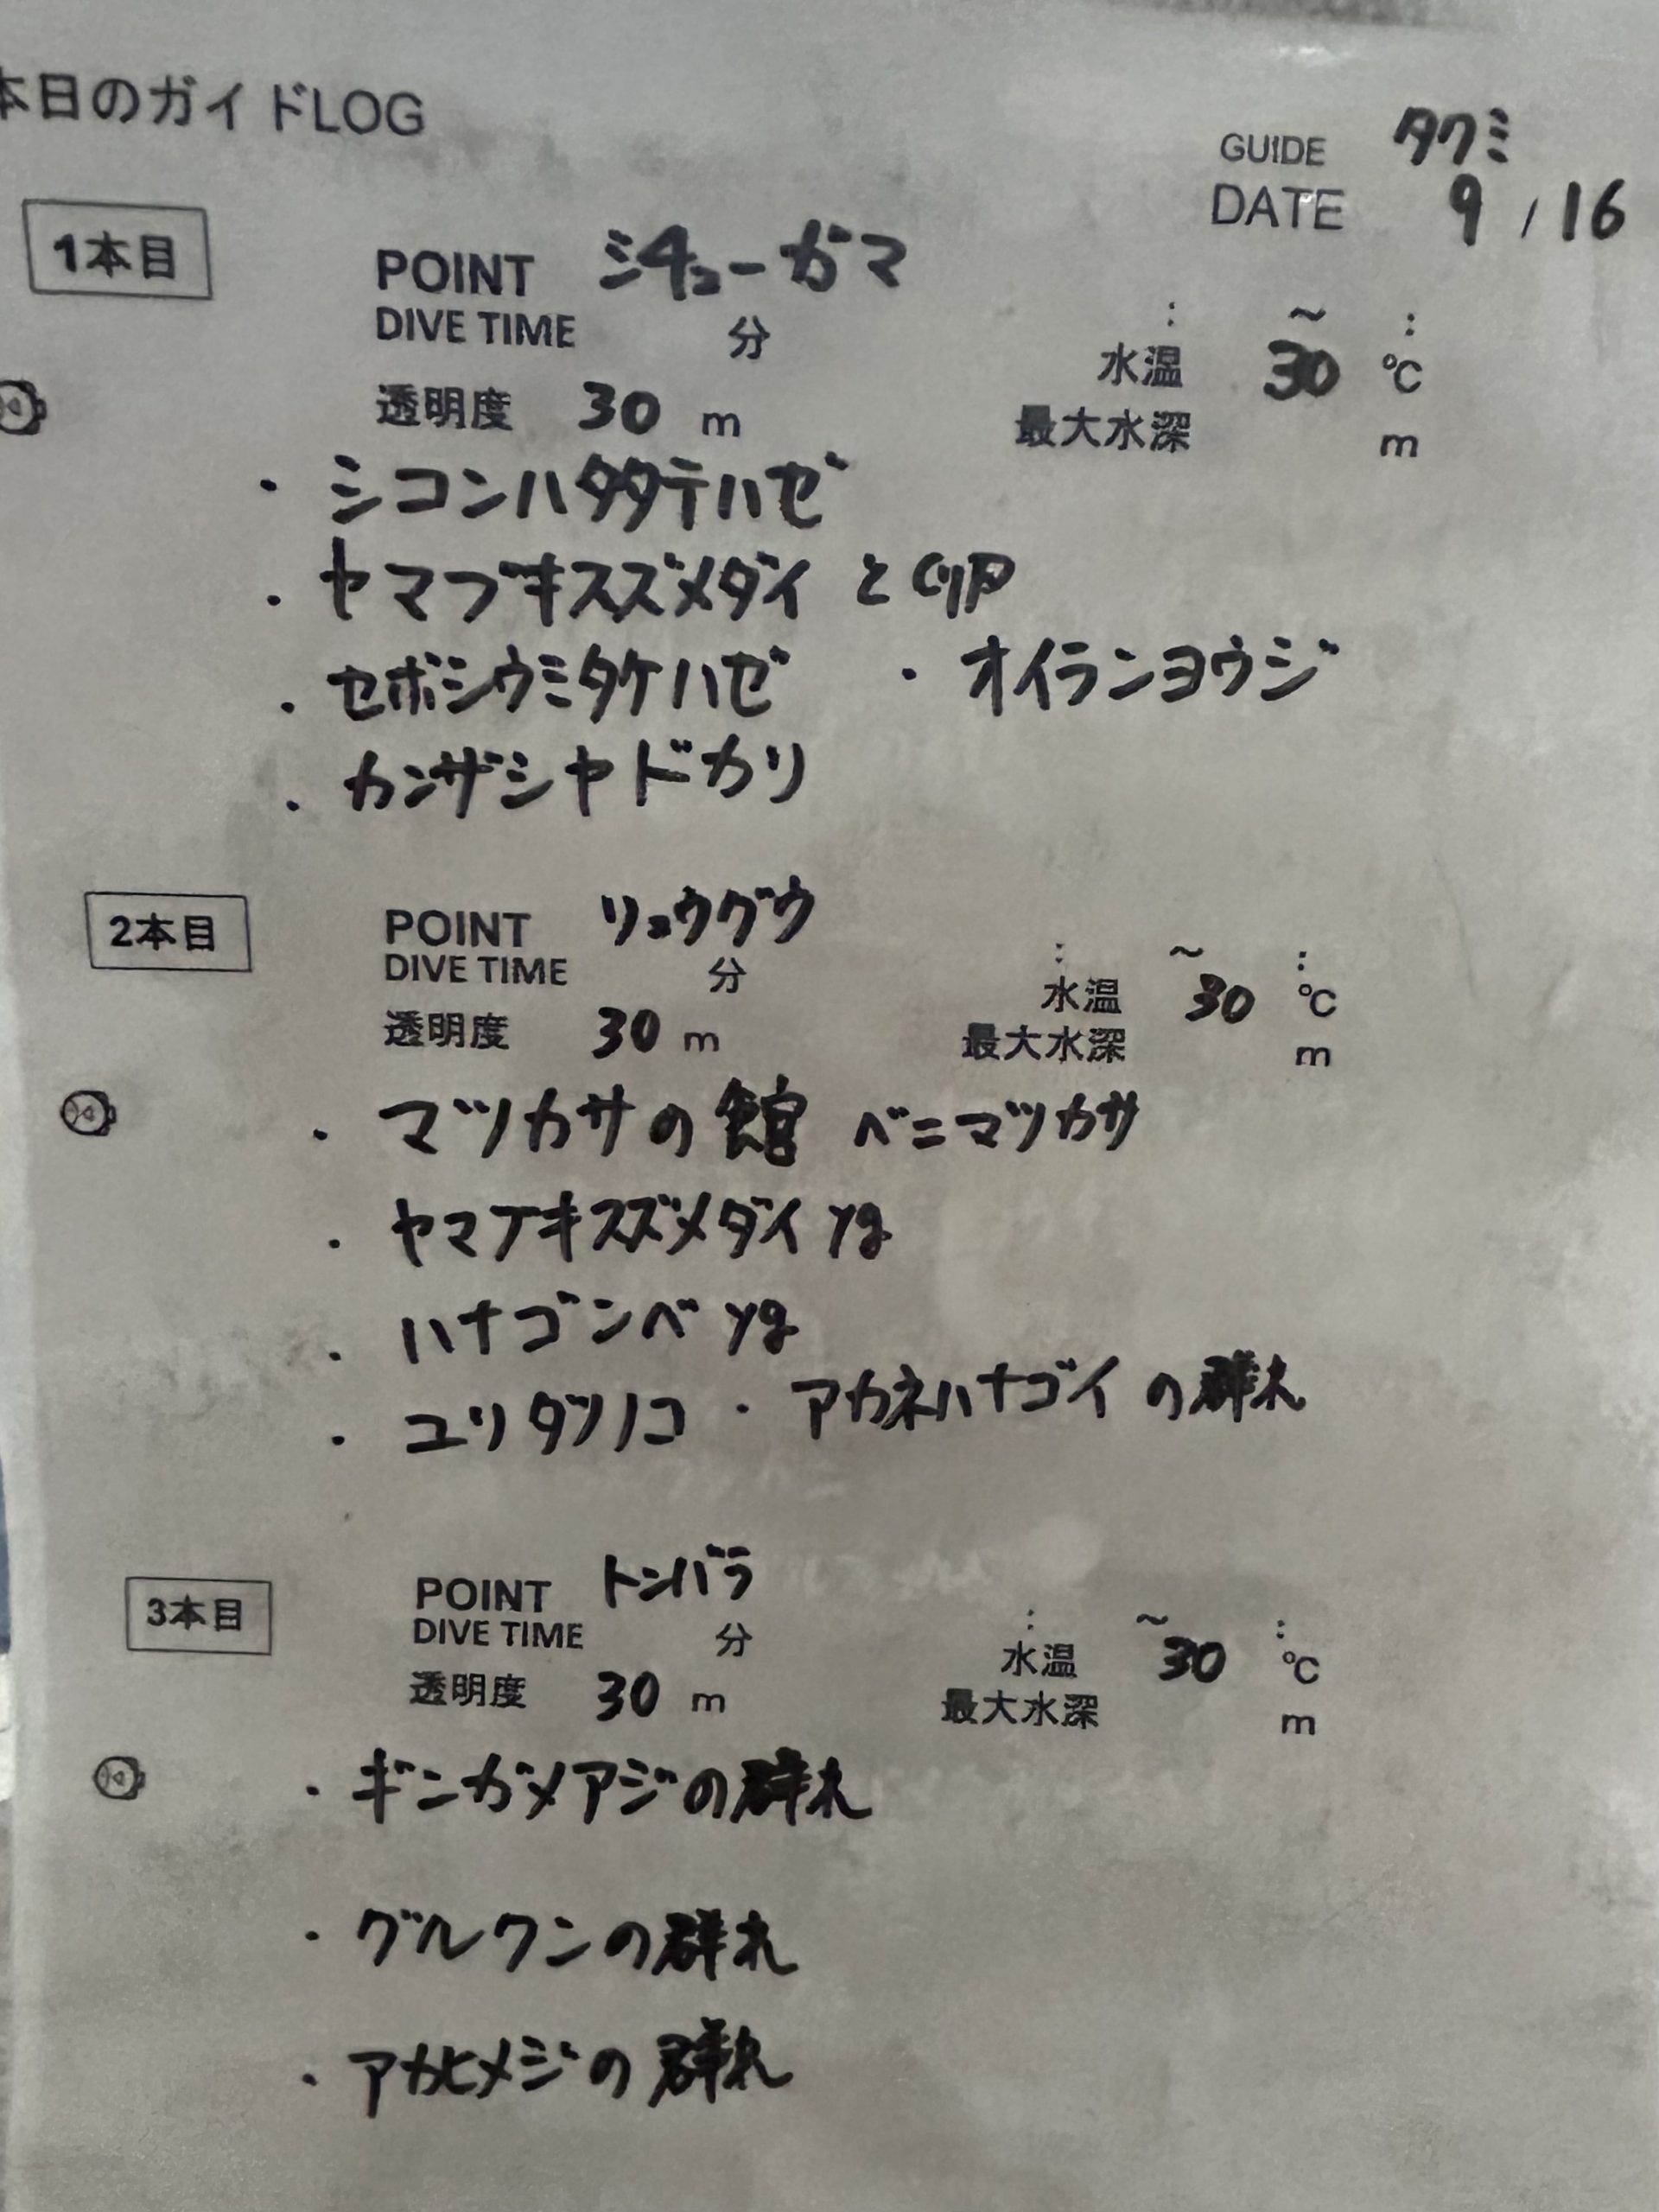 本日のガイドLOG
GUIDE タクミ
DATE 9/16
1本目
POINT シチューガマ
DIVE TIME 分 : ~ :
水温 30 ℃
透明度 30 m
最大水深 m
・シコンハタタテハゼ
・ヤマブキスズメダイ と卵
・セボシウミタケハゼ ・オイランヨウジ
・カンザシヤドカリ
2本目
POINT リュウグウ
DIVE TIME 分 : ~ :
水温 30 ℃
透明度 30 m
最大水深 m
・マツカサの館 ベニマツカサ
・ヤマブキスズメダイ yg
・ハナゴンベ yg
・ユリタツノコ ・アカネハナゴイの群れ
3本目
POINT トンバラ
DIVE TIME 分 : ~ :
水温 30 ℃
透明度 30 m
最大水深 m
・ギンガメアジの群れ
・グルクンの群れ
・アカヒメジの群れ